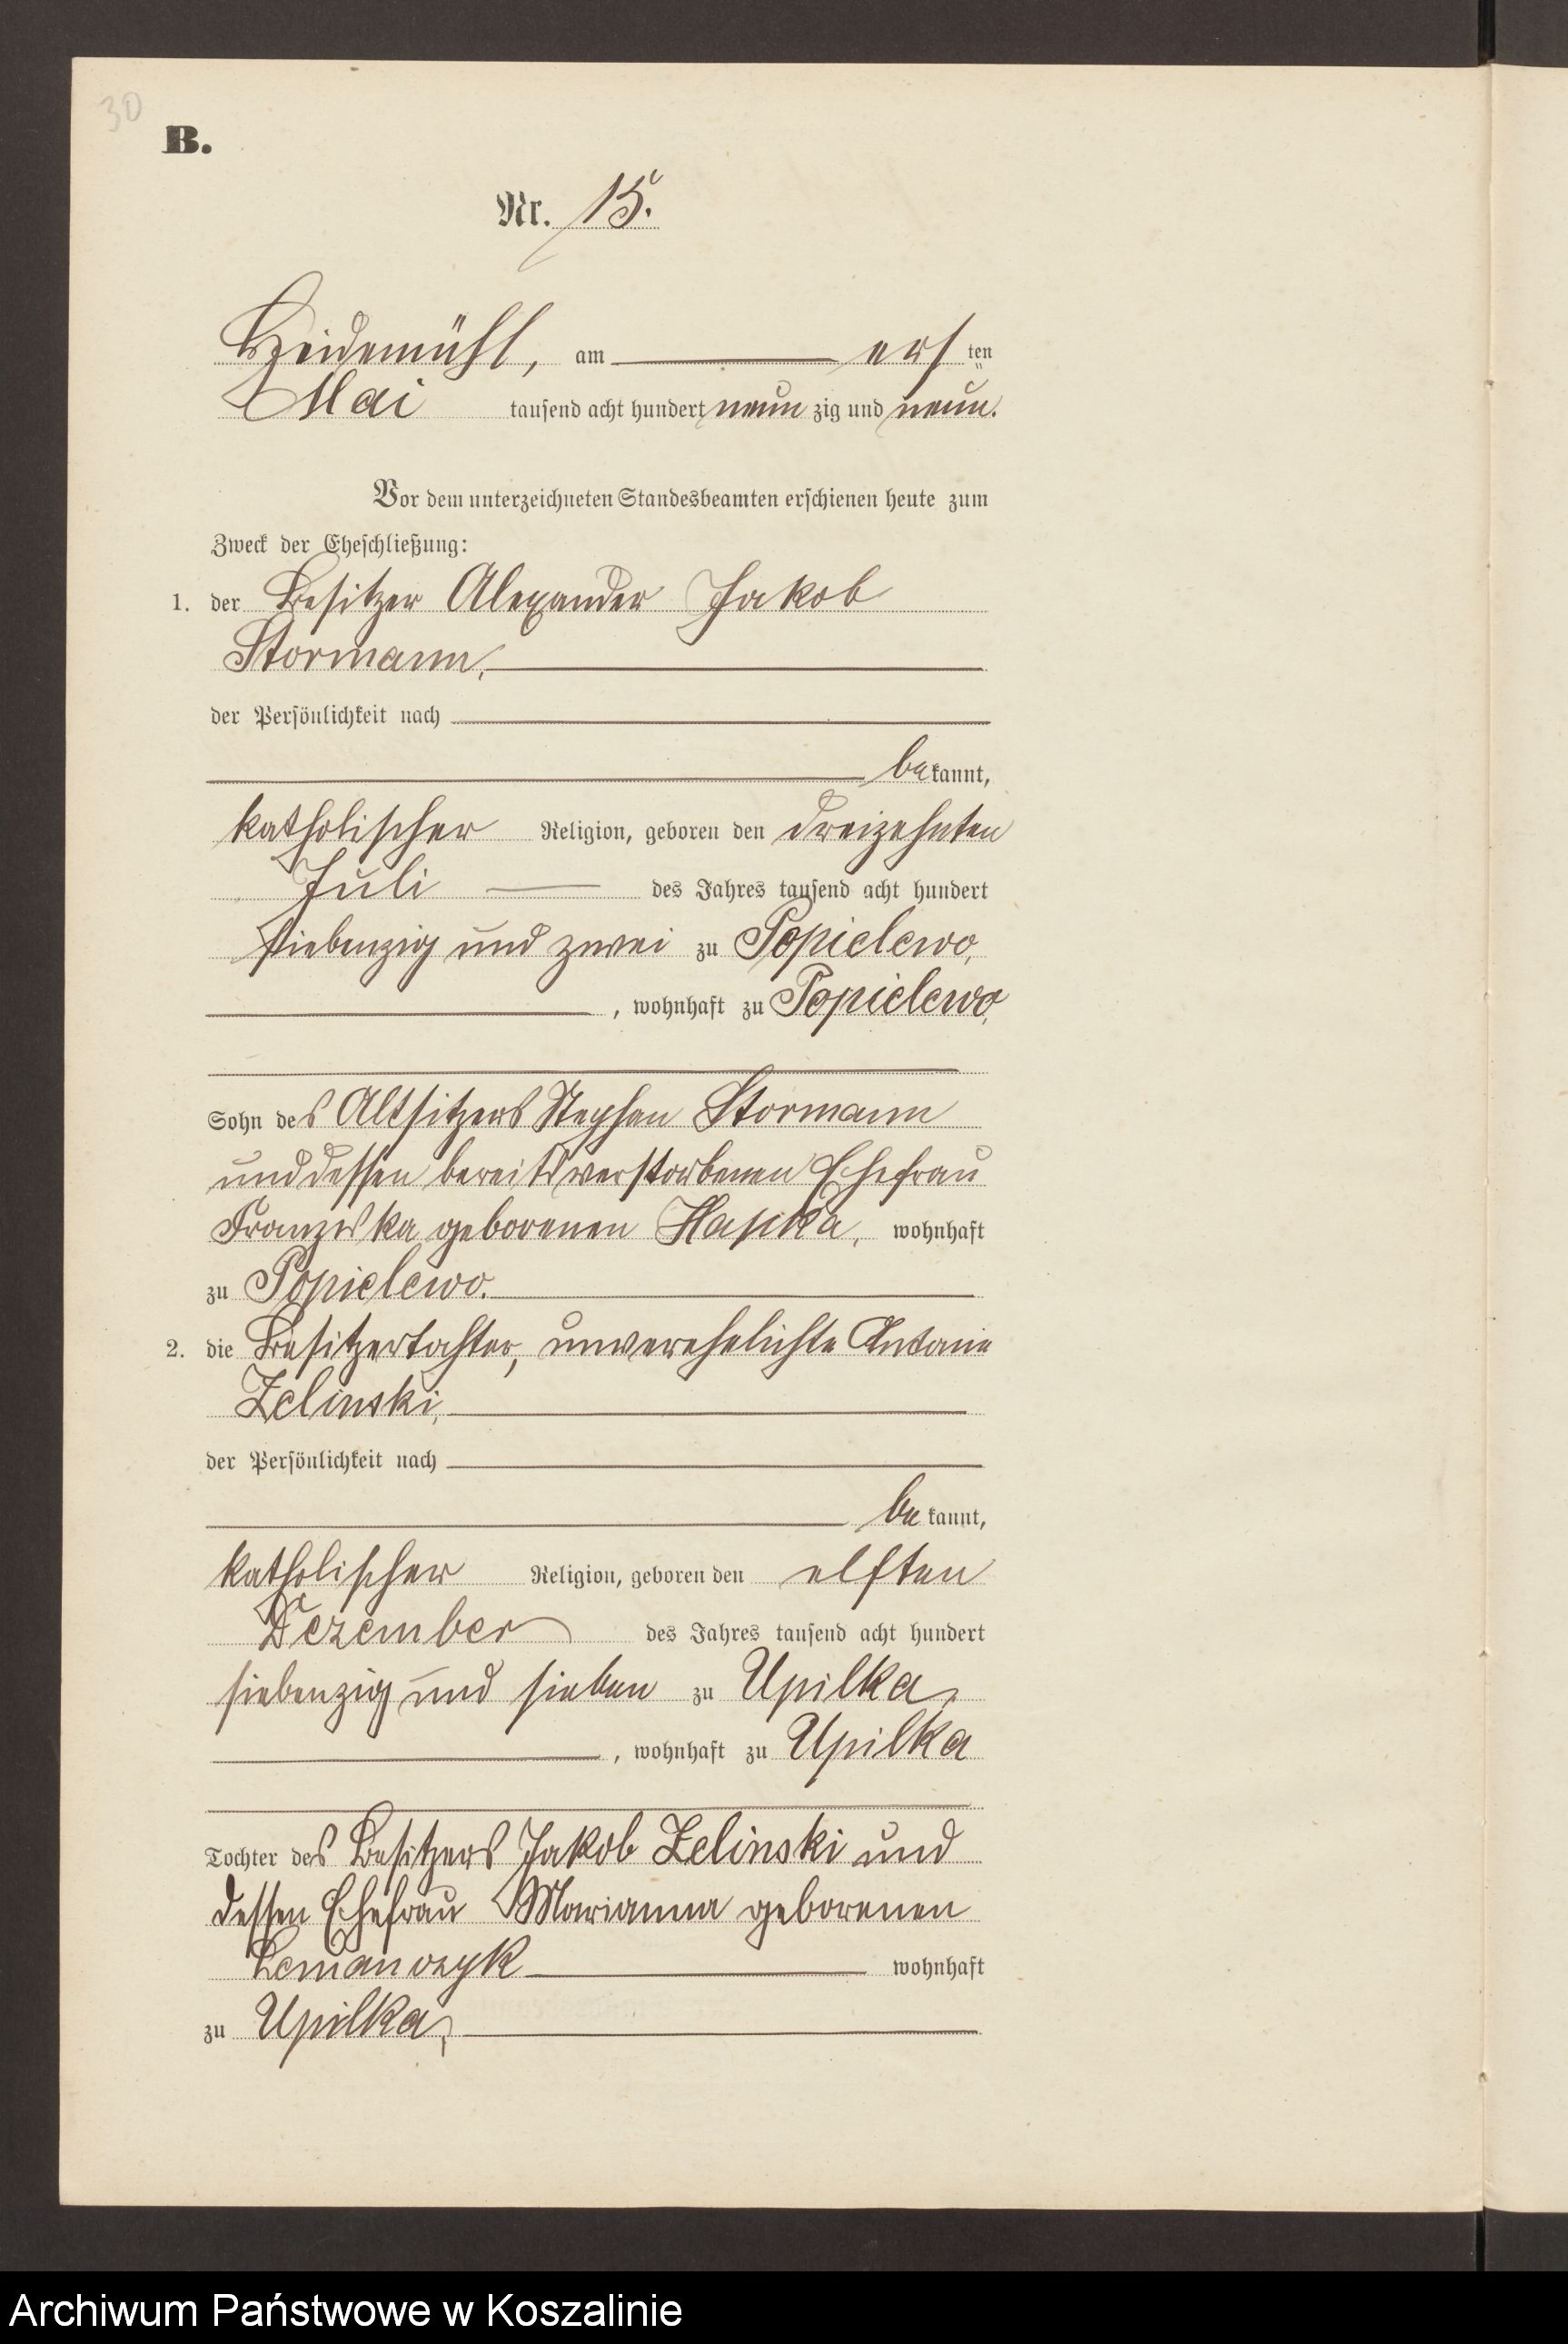 30
B.
Nr. 15.
Heidemühl, am ersten
Mai tausend acht hundert neun zig und neun.
Vor dem unterzeichneten Standesbeamten erschienen heute zum
Zweck der Eheschließung:
1. der Besitzer Alexander Jakob
Stormann,
der Persönlichkeit nach
bekannt,
katholischer Religion, geboren den dreizehnten
Juli des Jahres tausend acht hundert
siebenzig und zwei zu Popielewo,
, wohnhaft zu Popielewo,
Sohn des Altsitzers Stephan Stormann
und dessen bereits verstorbenen Ehefrau
Franziska geborenen Hapka, wohnhaft
zu Popielewo.
2. die Besitzertochter, unverehelichte Antonie
Zelinski,
der Persönlichkeit nach
bekannt,
katholischer Religion, geboren den elften
Dezember des Jahres tausend acht hundert
siebenzig und sieben zu Upilka,
, wohnhaft zu Upilka
Tochter des Besitzers Jakob Zelinski und
dessen Ehefrau Marianna geborenen
Lemanczyk wohnhaft
zu Upilka,
Archiwum Państwowe w Koszalinie